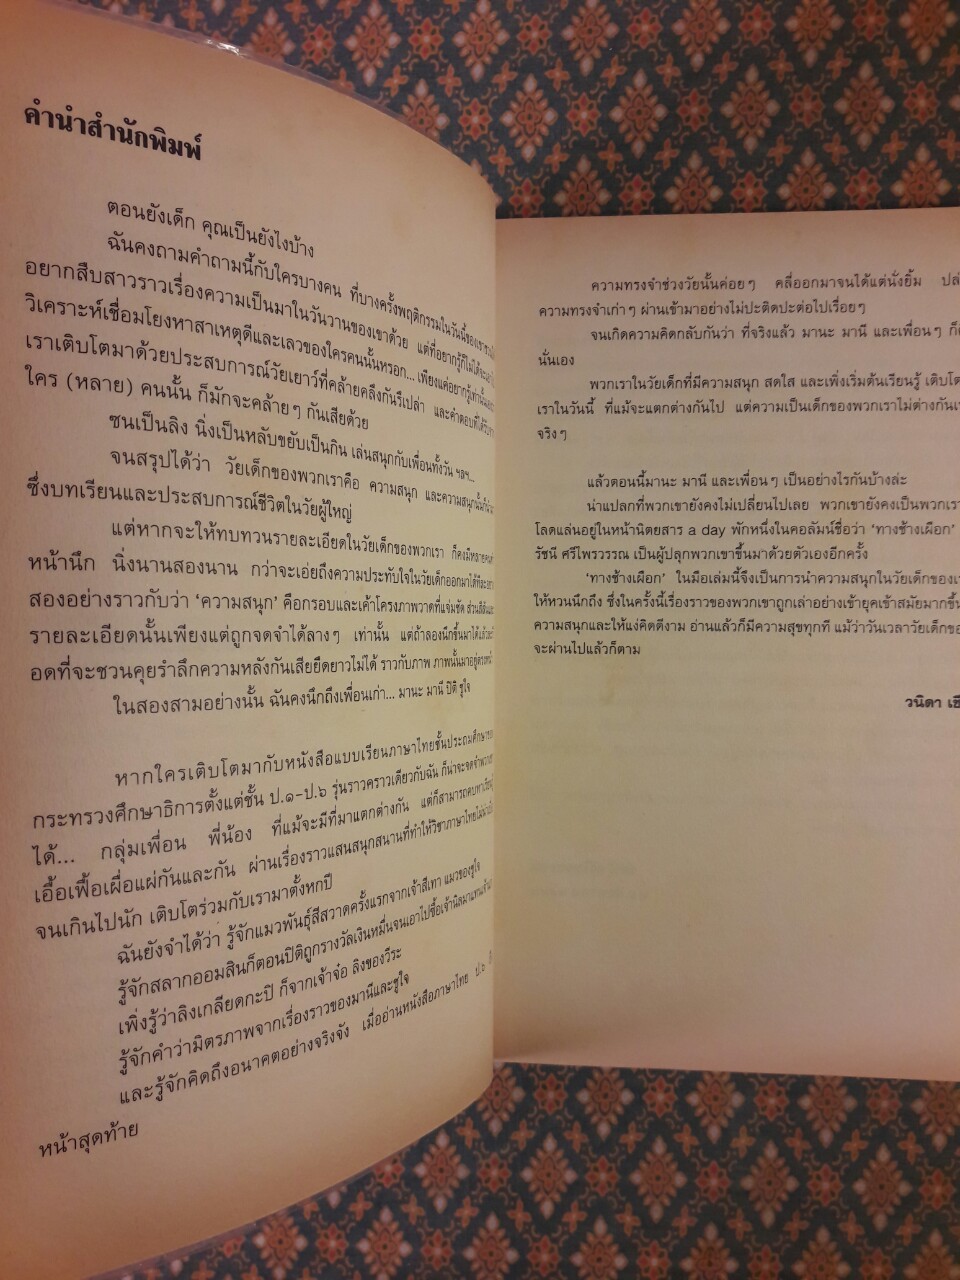 คำนำสำนักพิมพ์
ตอนยังเด็ก คุณเป็นยังไงบ้าง
ฉันคงถามคำถามนี้กับใครบางคน ที่บางครั้งพฤติกรรมในวันนี้ของเขา
อยากสืบสาวราวเรื่องความเป็นมาในวันวานของเขาด้วย แต่ที่อยากรู้ก็ไม่ได้
วิเคราะห์เชื่อมโยงหาสาเหตุดีและเลวของใครคนนั้นหรอก... เพียงแค่อยากรู้เท่านั้น
เราเติบโตมาด้วยประสบการณ์วัยเยาว์ที่คล้ายคลึงกันรึเปล่า และคำตอบที่ได้
ใคร (หลาย) คนนั้น ก็มักจะคล้ายๆ กันเสียด้วย
ซนเป็นลิง นิ่งเป็นหลับขยับเป็นกิน เล่นสนุกกับเพื่อนทั้งวัน ฯลฯ...
จนสรุปได้ว่า วัยเด็กของพวกเราคือ ความสนุก และความสนุกนั้นก็
ซึ่งบทเรียนและประสบการณ์ชีวิตในวัยผู้ใหญ่
แต่หากจะให้ทบทวนรายละเอียดในวัยเด็กของพวกเรา ก็คงมีหลายคน
หน้านึก นิ่งนานสองนาน กว่าจะเอ่ยถึงความประทับใจในวัยเด็กออกมาได้
สองอย่างราวกับว่า ‘ความสนุก’ คือกรอบและเค้าโครงภาพวาดที่แจ่มชัด ส่วนสีสัน
รายละเอียดนั้นเพียงแต่ถูกจดจำได้ลางๆ เท่านั้น แต่ถ้าลองนึกขึ้นมาได้แล้ว
อดที่จะชวนคุยรำลึกความหลังกันเสียยืดยาวไม่ได้ ราวกับภาพ ภาพนั้นมาอยู่ตรงหน้า
ในสองสามอย่างนั้น ฉันคงนึกถึงเพื่อนเก่า... มานะ มานี ปิติ ชูใจ
หากใครเติบโตมากับหนังสือแบบเรียนภาษาไทยชั้นประถมศึกษาของ
กระทรวงศึกษาธิการตั้งแต่ชั้น ป.๑-ป.๖ รุ่นราวคราวเดียวกับฉัน ก็น่าจะจดจำ
ได้... กลุ่มเพื่อน พี่น้อง ที่แม้จะมีที่มาแตกต่างกัน แต่ก็สามารถคบหา
เอื้อเฟื้อเผื่อแผ่กันและกัน ผ่านเรื่องราวแสนสนุกสนานที่ทำให้วิชาภาษาไทยไม่
จนเกินไปนัก เติบโตร่วมกับเรามาตั้งหกปี
ฉันยังจำได้ว่า รู้จักแมวพันธุ์สีสวาดครั้งแรกจากเจ้าสีเทา แมวของชูใจ
รู้จักสลากออมสินก็ตอนปิติถูกรางวัลเงินหมื่นจนเอาไปซื้อเจ้านิลมาแทนเจ้า
เพิ่งรู้ว่าลิงเกลียดกะปิ ก็จากเจ้าจ๋อ ลิงของวีระ
รู้จักคำว่ามิตรภาพจากเรื่องราวของมานีและชูใจ
และรู้จักคิดถึงอนาคตอย่างจริงจัง เมื่ออ่านหนังสือภาษาไทย ป.๖
หน้าสุดท้าย
ความทรงจำช่วงวัยนั้นค่อยๆ คลี่ออกมาจนได้แต่นั่งยิ้ม
ความทรงจำเก่าๆ ผ่านเข้ามาอย่างไม่ปะติดปะต่อไปเรื่อยๆ
จนเกิดความคิดกลับกันว่า ที่จริงแล้ว มานะ มานี และเพื่อนๆ
นั่นเอง
พวกเราในวัยเด็กที่มีความสนุก สดใส และเพิ่งเริ่มต้นเรียนรู้
เราในวันนี้ ที่แม้จะแตกต่างกันไป แต่ความเป็นเด็กของพวกเราไม่ต่างกัน
จริงๆ
แล้วตอนนี้มานะ มานี และเพื่อนๆ เป็นอย่างไรกันบ้างล่ะ
น่าแปลกที่พวกเขายังคงไม่เปลี่ยนไปเลย พวกเขายังคงเป็นพวกเรา
โลดแล่นอยู่ในหน้านิตยสาร a day พักหนึ่งในคอลัมน์ชื่อว่า ‘ทางช้างเผือก’
รัชนี ศรีไพรวรรณ เป็นผู้ปลุกพวกเขาขึ้นมาด้วยตัวเองอีกครั้ง
‘ทางช้างเผือก’ ในมือเล่มนี้จึงเป็นการนำความสนุกในวัยเด็กของ
ให้หวนนึกถึง ซึ่งในครั้งนี้เรื่องราวของพวกเขาถูกเล่าอย่างเข้ายุคเข้าสมัยมากขึ้น
ความสนุกและให้แง่คิดดีงาม อ่านแล้วก็มีความสุขทุกที แม้ว่าวันเวลาวัยเด็ก
จะผ่านไปแล้วก็ตาม
วนิดา